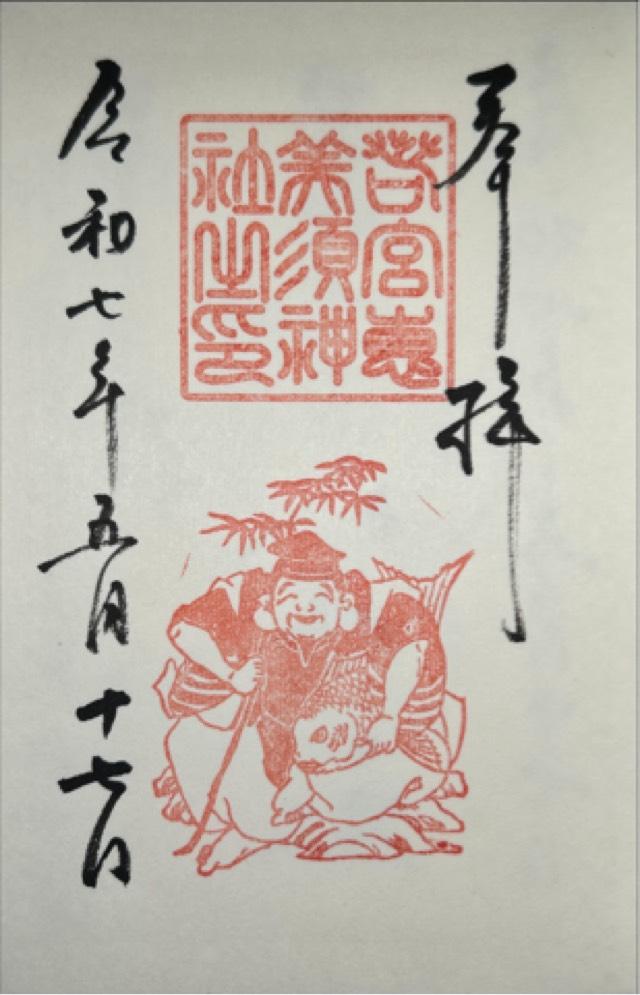 奉拝
若宮恵
美須神
社之印
令和七年五月十七日